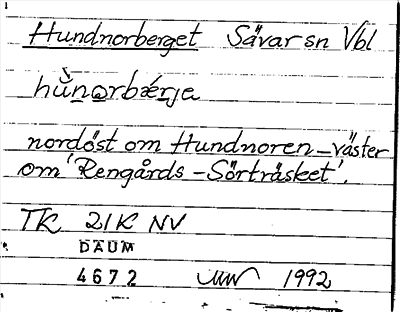 Hundnorberget Sävar sn Vbl
hùnorbǽrje
nordöst om Hundnoren – väster
om 'Rengårds – Sörträsket'.
TK 21K NV
DAUM
4672 1992